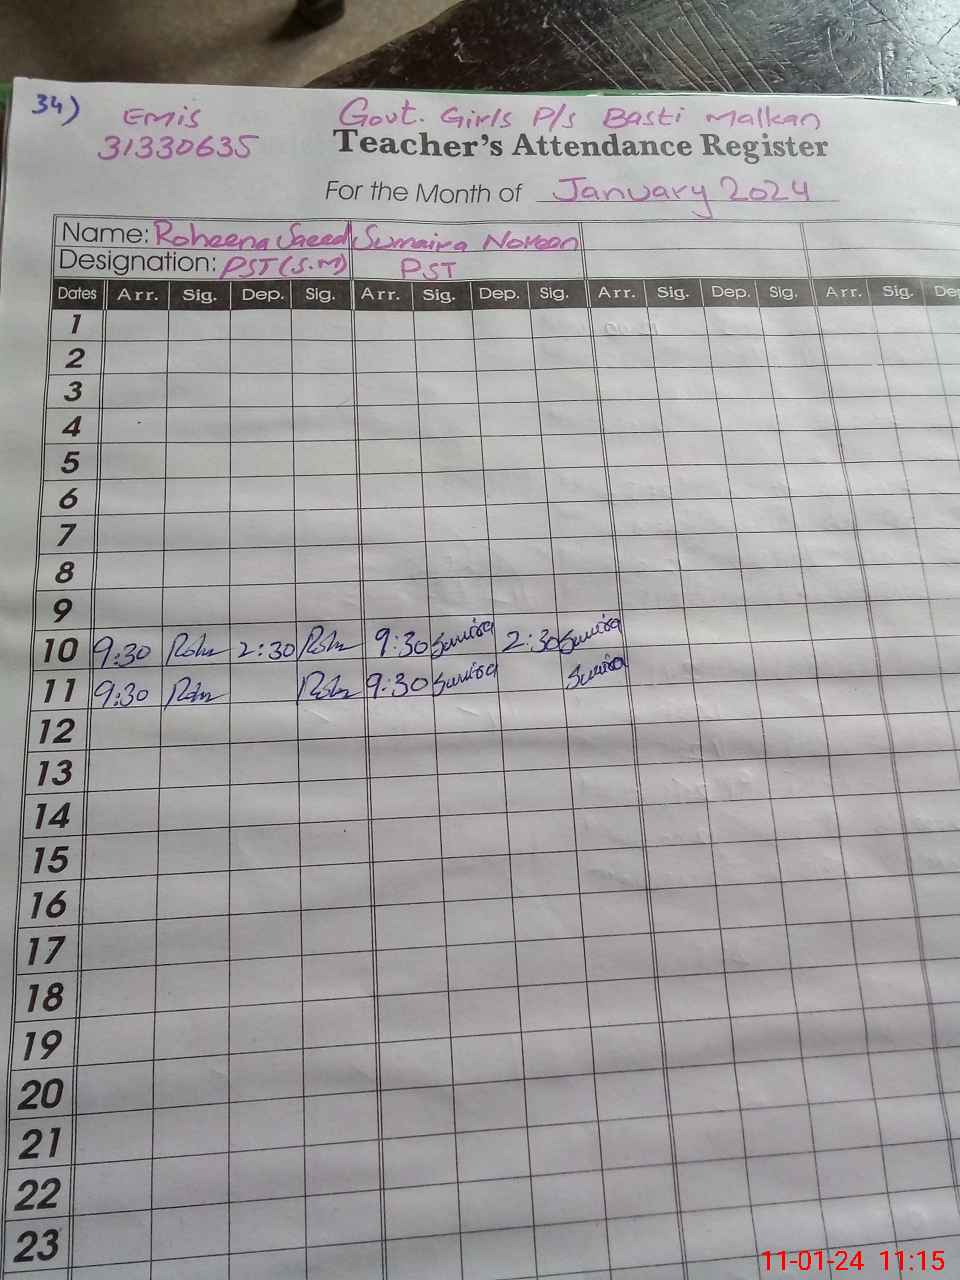 34) Emis Govt. Girls P/s Basti Malkan
31330635 Teacher's Attendance Register
For the Month of January 2024
Name: Roheena Saeed Sumaira Noreen
Designation: PST (S.M) PST
Dates Arr. Sig. Dep. Sig. Arr. Sig. Dep. Sig. Arr. Sig. Dep. Sig. Arr. Sig. De
1
2
3
4
5
6
7
8
9
10 9:30 2:30 9:30 2:30
11 9:30 9:30
12
13
14
15
16
17
18
19
20
21
22
23
11-01-24 11:15